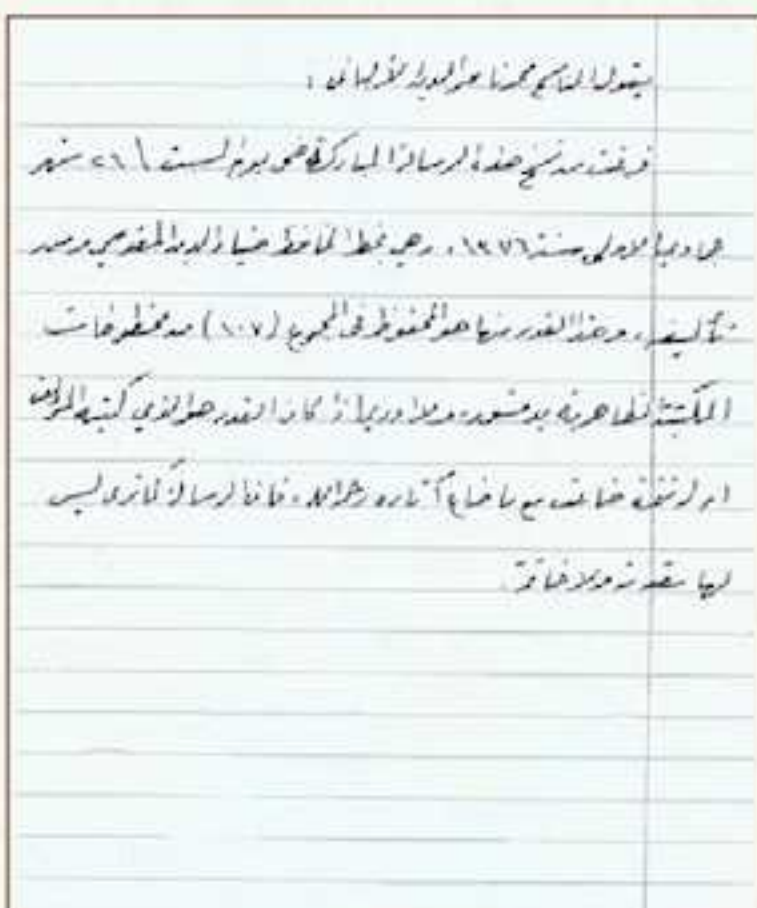 يقول الناسخ محمد ناصر الدين الألباني :
فرغت من نسخ هذه الرسالة المباركة ضحى يوم السبت ٢٦ شهر
جمادى الأولى سنة ١٣٧٦، وهي بخط الحافظ ضياء الدين المقدسي ومن
تأليفه، وهذا القدر منها هو المحفوظ في المجموع (١٠٧) من مخطوطات
المكتبة الظاهرية بدمشق، ولا أدري إذا كان القدر هو الذي كتبه المؤلف
أم له تتمة ضاعت مع ما ضاع آثاره رحمه الله، فإن الرسالة كما ترى ليس
لها مقدمة ولا خاتمة.